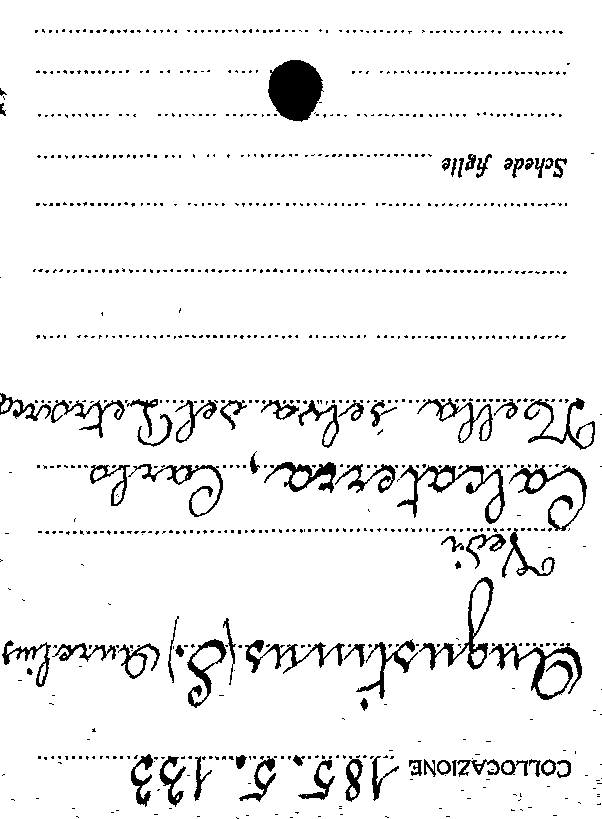 COLLOCAZIONE 185.5.133
Augustinus (S.) Aurelius
Vedi
Calcaterra, Carlo
Nella selva del Petrarca
Schede figlie